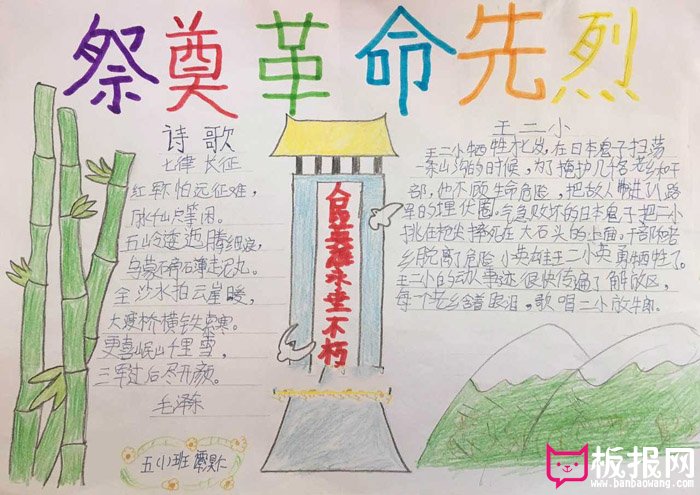 祭奠革命先烈
诗歌
七律 长征
红军不怕远征难,
万水千山只等闲。
五岭逶迤腾细浪,
乌蒙磅礴走泥丸。
金沙水拍云崖暖,
大渡桥横铁索寒。
更喜岷山千里雪,
三军过后尽开颜。
毛泽东
人民英雄永垂不朽
王二小
王二小牺牲七岁,在日本鬼子扫荡
一条山沟的时候,为了掩护几千名老乡和干
部,他不顾生命危险,把敌人带进八路
军的埋伏圈。气急败坏的日本鬼子把二小
挑在枪尖摔死在大石头的上面。干部和老
乡脱离了危险,小英雄王二小英勇牺牲了。
王二小的动事迹很快传遍了解放区,
每个老乡含着眼泪,歌唱二小放牛郎。
五(1)班
板报网
www.banbaowang.com